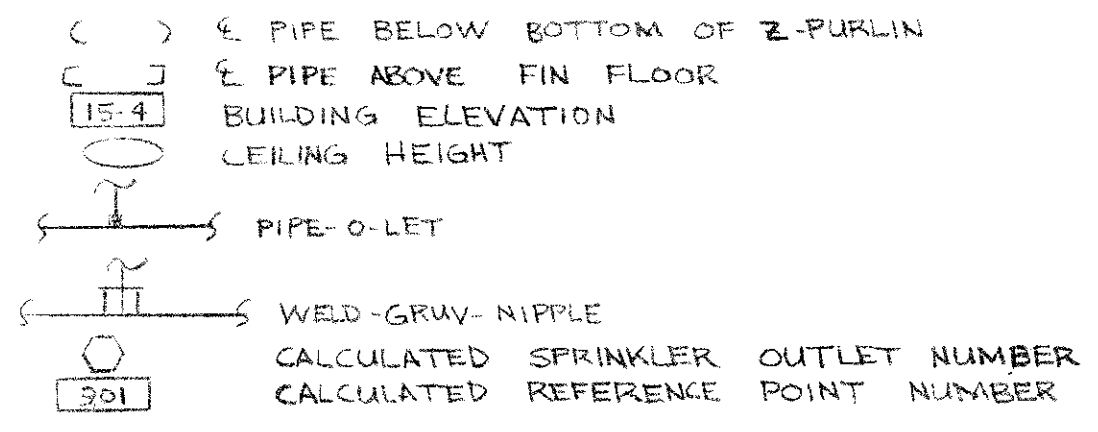 ( ) ℄ PIPE BELOW BOTTOM OF Z-PURLIN
[ ] ℄ PIPE ABOVE FIN FLOOR
15-4 BUILDING ELEVATION
CEILING HEIGHT
PIPE-O-LET
WELD-GRUV-NIPPLE
CALCULATED SPRINKLER OUTLET NUMBER
901 CALCULATED REFERENCE POINT NUMBER